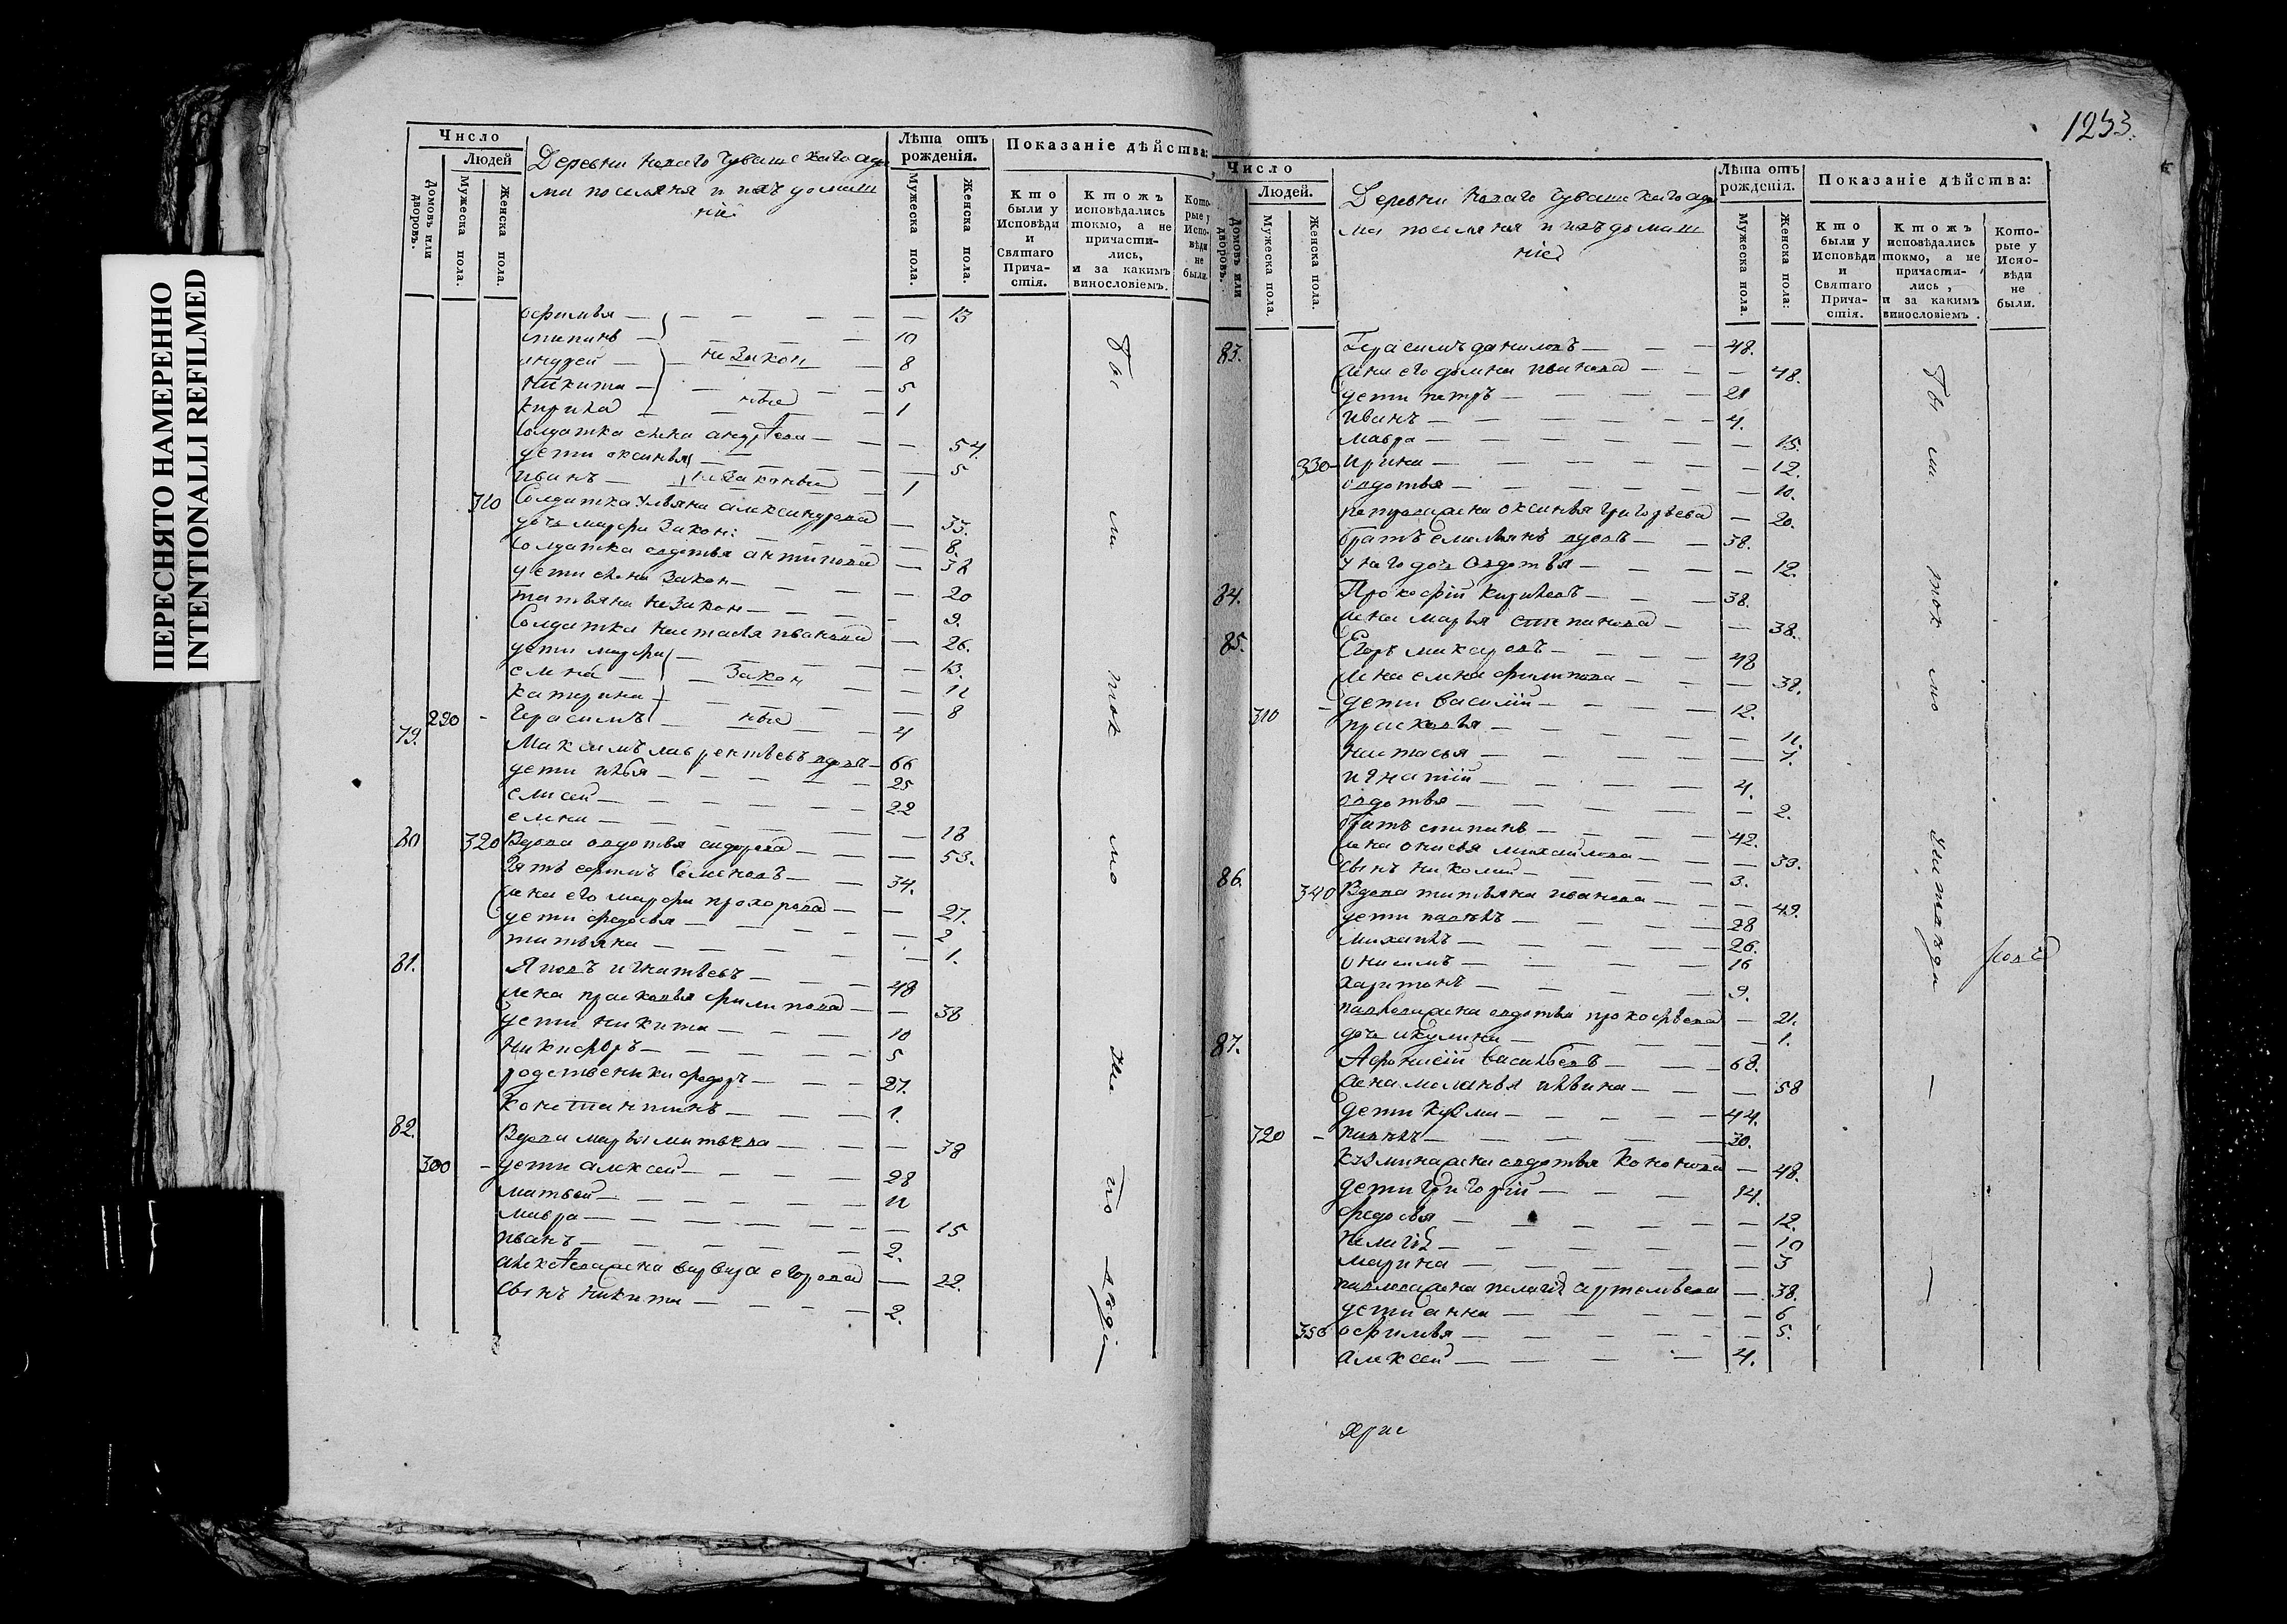 ПЕРЕСНЯТО НАМЕРЕННО
INTENTIONALLI REFILMED
Число
Людей
Домовъ или дворовъ.
Мужеска пола.
Женска пола.
Деревни новаго Чувашскаго адя
ма поселяня и ихъ домаш
ніе
Лѣта отъ рожденія.
Мужеска пола.
Женска пола.
Показаніе дѣйства:
Кто были у Исповѣди и Святаго Причастія.
Ктожъ исповѣдались токмо, а не причастились, и за какимъ винословіемъ.
Которые у Исповѣди не были.
офимья 13
степанъ 10
андрей незакон 8
никита 5
кирила ные 1
Солдатка елена андреева 54
дети оксинья 5
иванъ незаконные 1
310 Солдатка Ульяна александрова 33.
дочь марфа закон: 8.
Солдатка овдотья антипова 38
дети елена закон 20
татьяна незакон 9.
Солдатка настасья иванова 26.
дети марфа 13.
елена закон 11
катерина 8
290 - Герасимъ ные 4
79. Максимъ лаврентьевъ вдовъ 66
дети илья 25
елисей 22
елена 18
80 320 Вдова овдотья сидорова 53.
Зять сергей Семеновъ 34.
жена его марфа прохорова 27.
дети федосья 2
татьяна 1.
81. Яковъ игнатьевъ 48
жена прасковья филипова 38
дети никита 10
Никифоръ 5
родственики федоръ 27.
Константинъ 1.
82. Вдова марья матвеева 38
300 - дети алексей 28
матвей 11
мавра 15
иванъ 2.
алексеева жена варвара егорова 22.
сынъ никита 2.
бы
ли
ток
мо
1253.
Число
Людей.
Домовъ или дворовъ.
Мужеска пола.
Женска пола.
Деревни новаго Чувашскаго адя
ма поселяня и ихъ домаш
ніе
Лѣта отъ рожденія.
Мужеска пола.
Женска пола:
Показаніе дѣйства:
Кто были у Исповѣди и Святаго Причастія.
Ктожъ исповѣдались токмо, а не причастились, и за какимъ винословіемъ.
Которые у Исповѣди не были.
83. Герасимъ даниловъ 48.
жена его домна иванова 48.
дети петръ 21
иванъ 4.
мавра 15.
330 - ирина 12.
овдотья 10.
петрова жена оксинья григорьева 20.
братъ емельянъ вдовъ 38.
у него дочь овдотья 12.
84. Прокофій кириловъ 38.
жена марья степанова 38.
85. Егоръ макаровъ 48
жена елена филипова 38.
310 - дети василий 12.
прасковья 11.
настасья 7.
игнатій 4.
овдотья 2.
братъ степанъ 42.
жена анисья михайлова 39.
сынъ николай 3.
86. 340 Вдова татьяна иванова 49.
дети павелъ 28
михаилъ 26.
онисимъ 16
харитонъ 9.
павлова жена овдотья прокофьева 21.
дочь акулина 1.
87. Афонасій васильевъ 68.
жена маланья ильина 58
дети кузма 44.
320 - павелъ 30.
кузмина жена овдотья кононова 48.
дети григорій 14.
федосья 12.
пелагея 10
марина 3
павлова жена пелагея артемьева 38.
дети анна 6
350 офимья 5.
алексей 4.
бы
ли
ток
мо
хрис